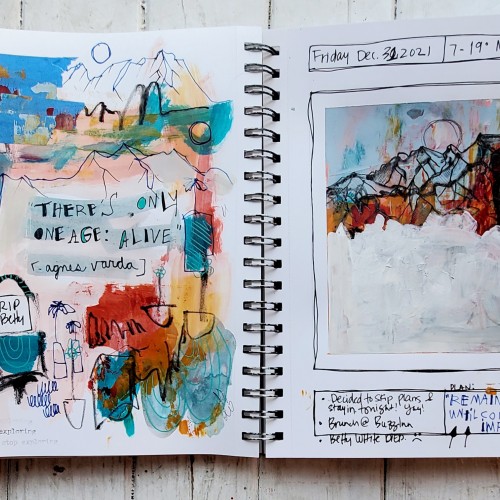 "THERE'S ONLY
ONE AGE: ALIVE"
[. agnes varda]
RIP
Betty
exploring
stop exploring
Friday Dec. 31 2021
7-19°
• Decided to skip plans &
stay in tonight! Yay!
• Brunch @ Buzz Inn
• Betty White DIED. :(
PLAN:
"REMAIN
UNTIL CO
IMP